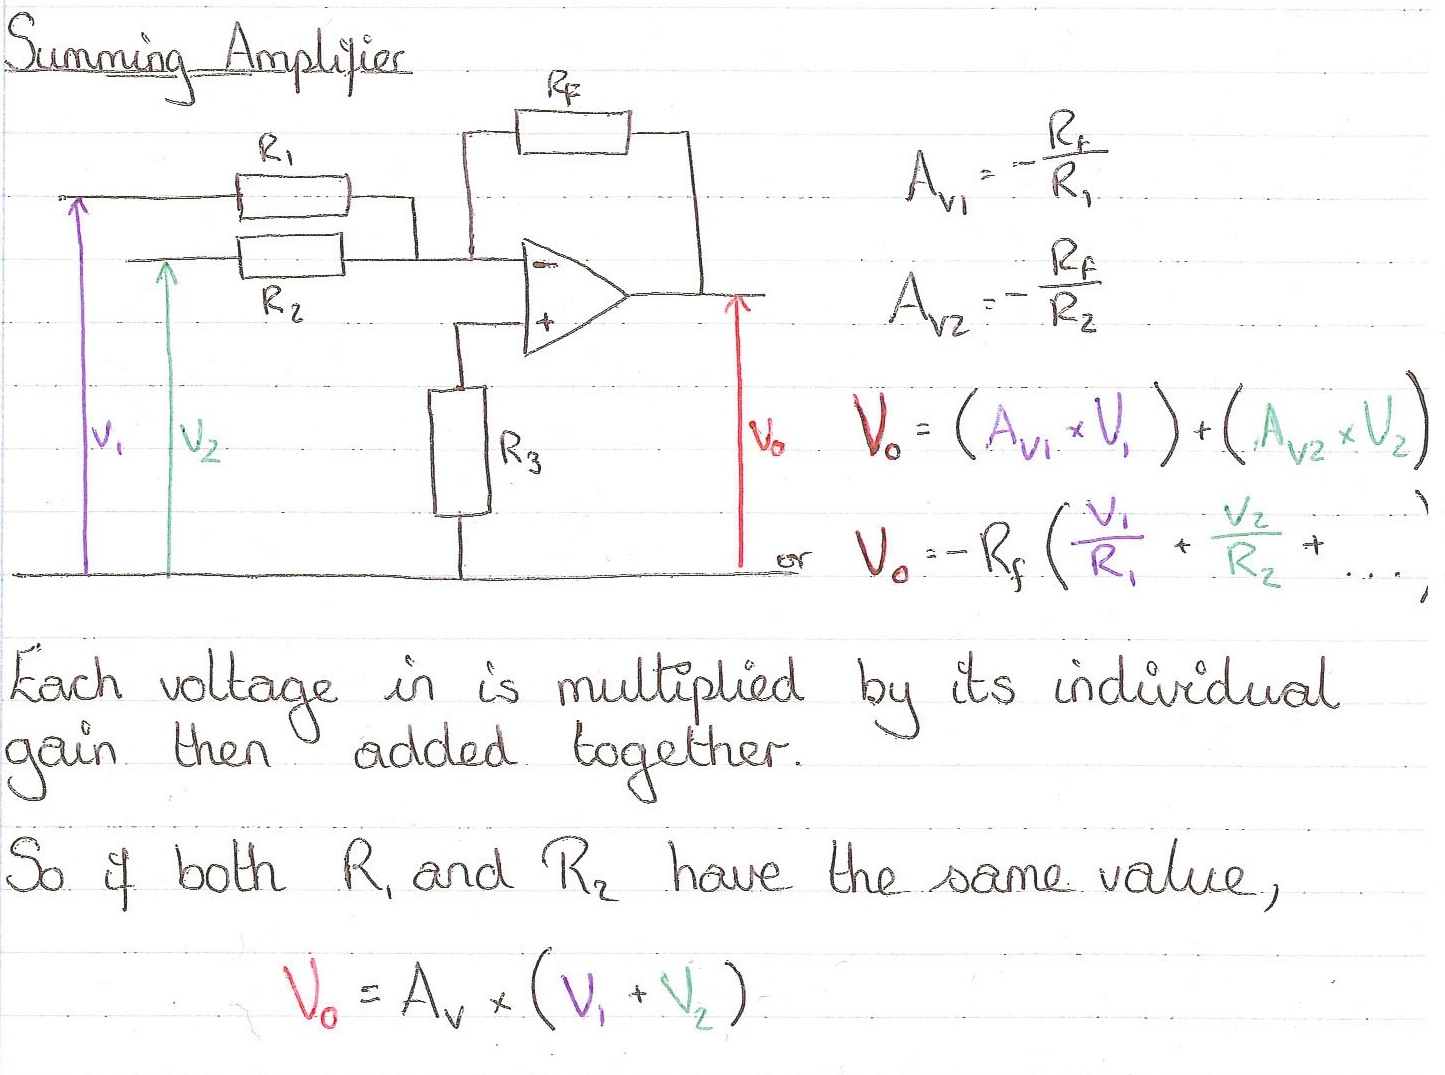 Summing Amplifier
RF
R1
R2
-
+
R3
V1
V2
Vo
AV1 = - RF/R1
AV2 = - RF/R2
Vo = (AV1 × V1) + (AV2 × V2)
or Vo = - Rf (V1/R1 + V2/R2 + ....)
Each voltage in is multiplied by its individual
gain then added together.
So if both R1 and R2 have the same value,
Vo = Av × (V1 + V2)